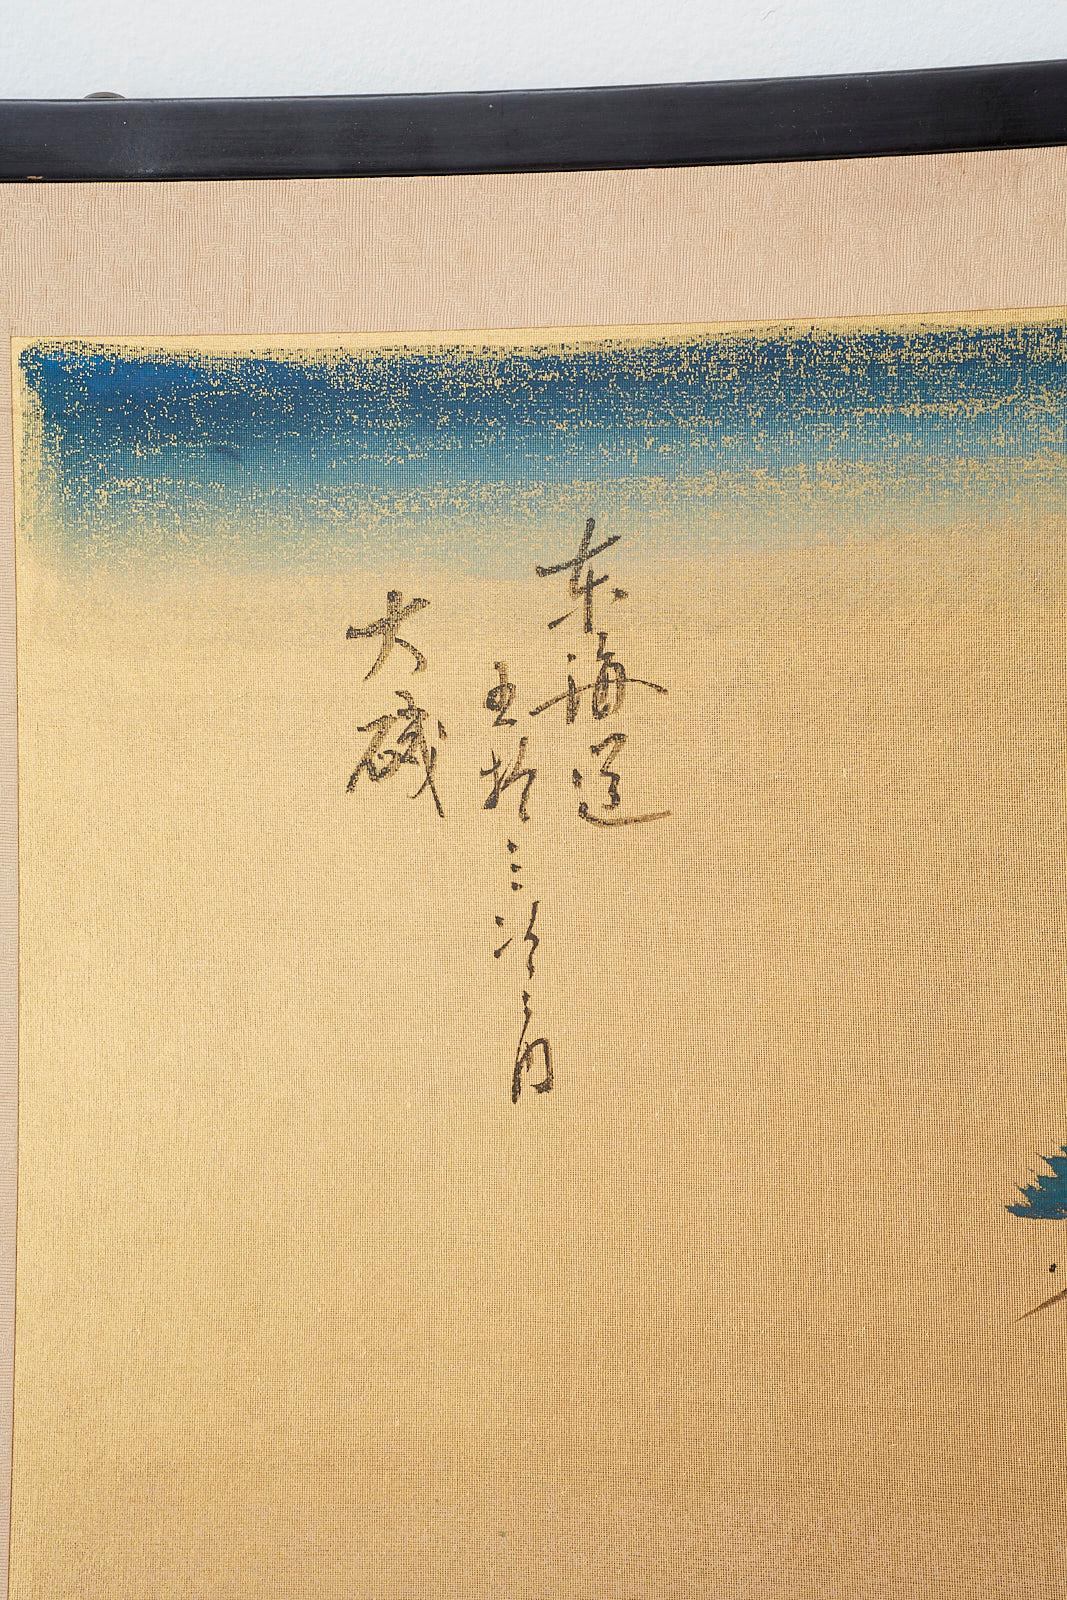 東海道
五拾三次之内
大磯